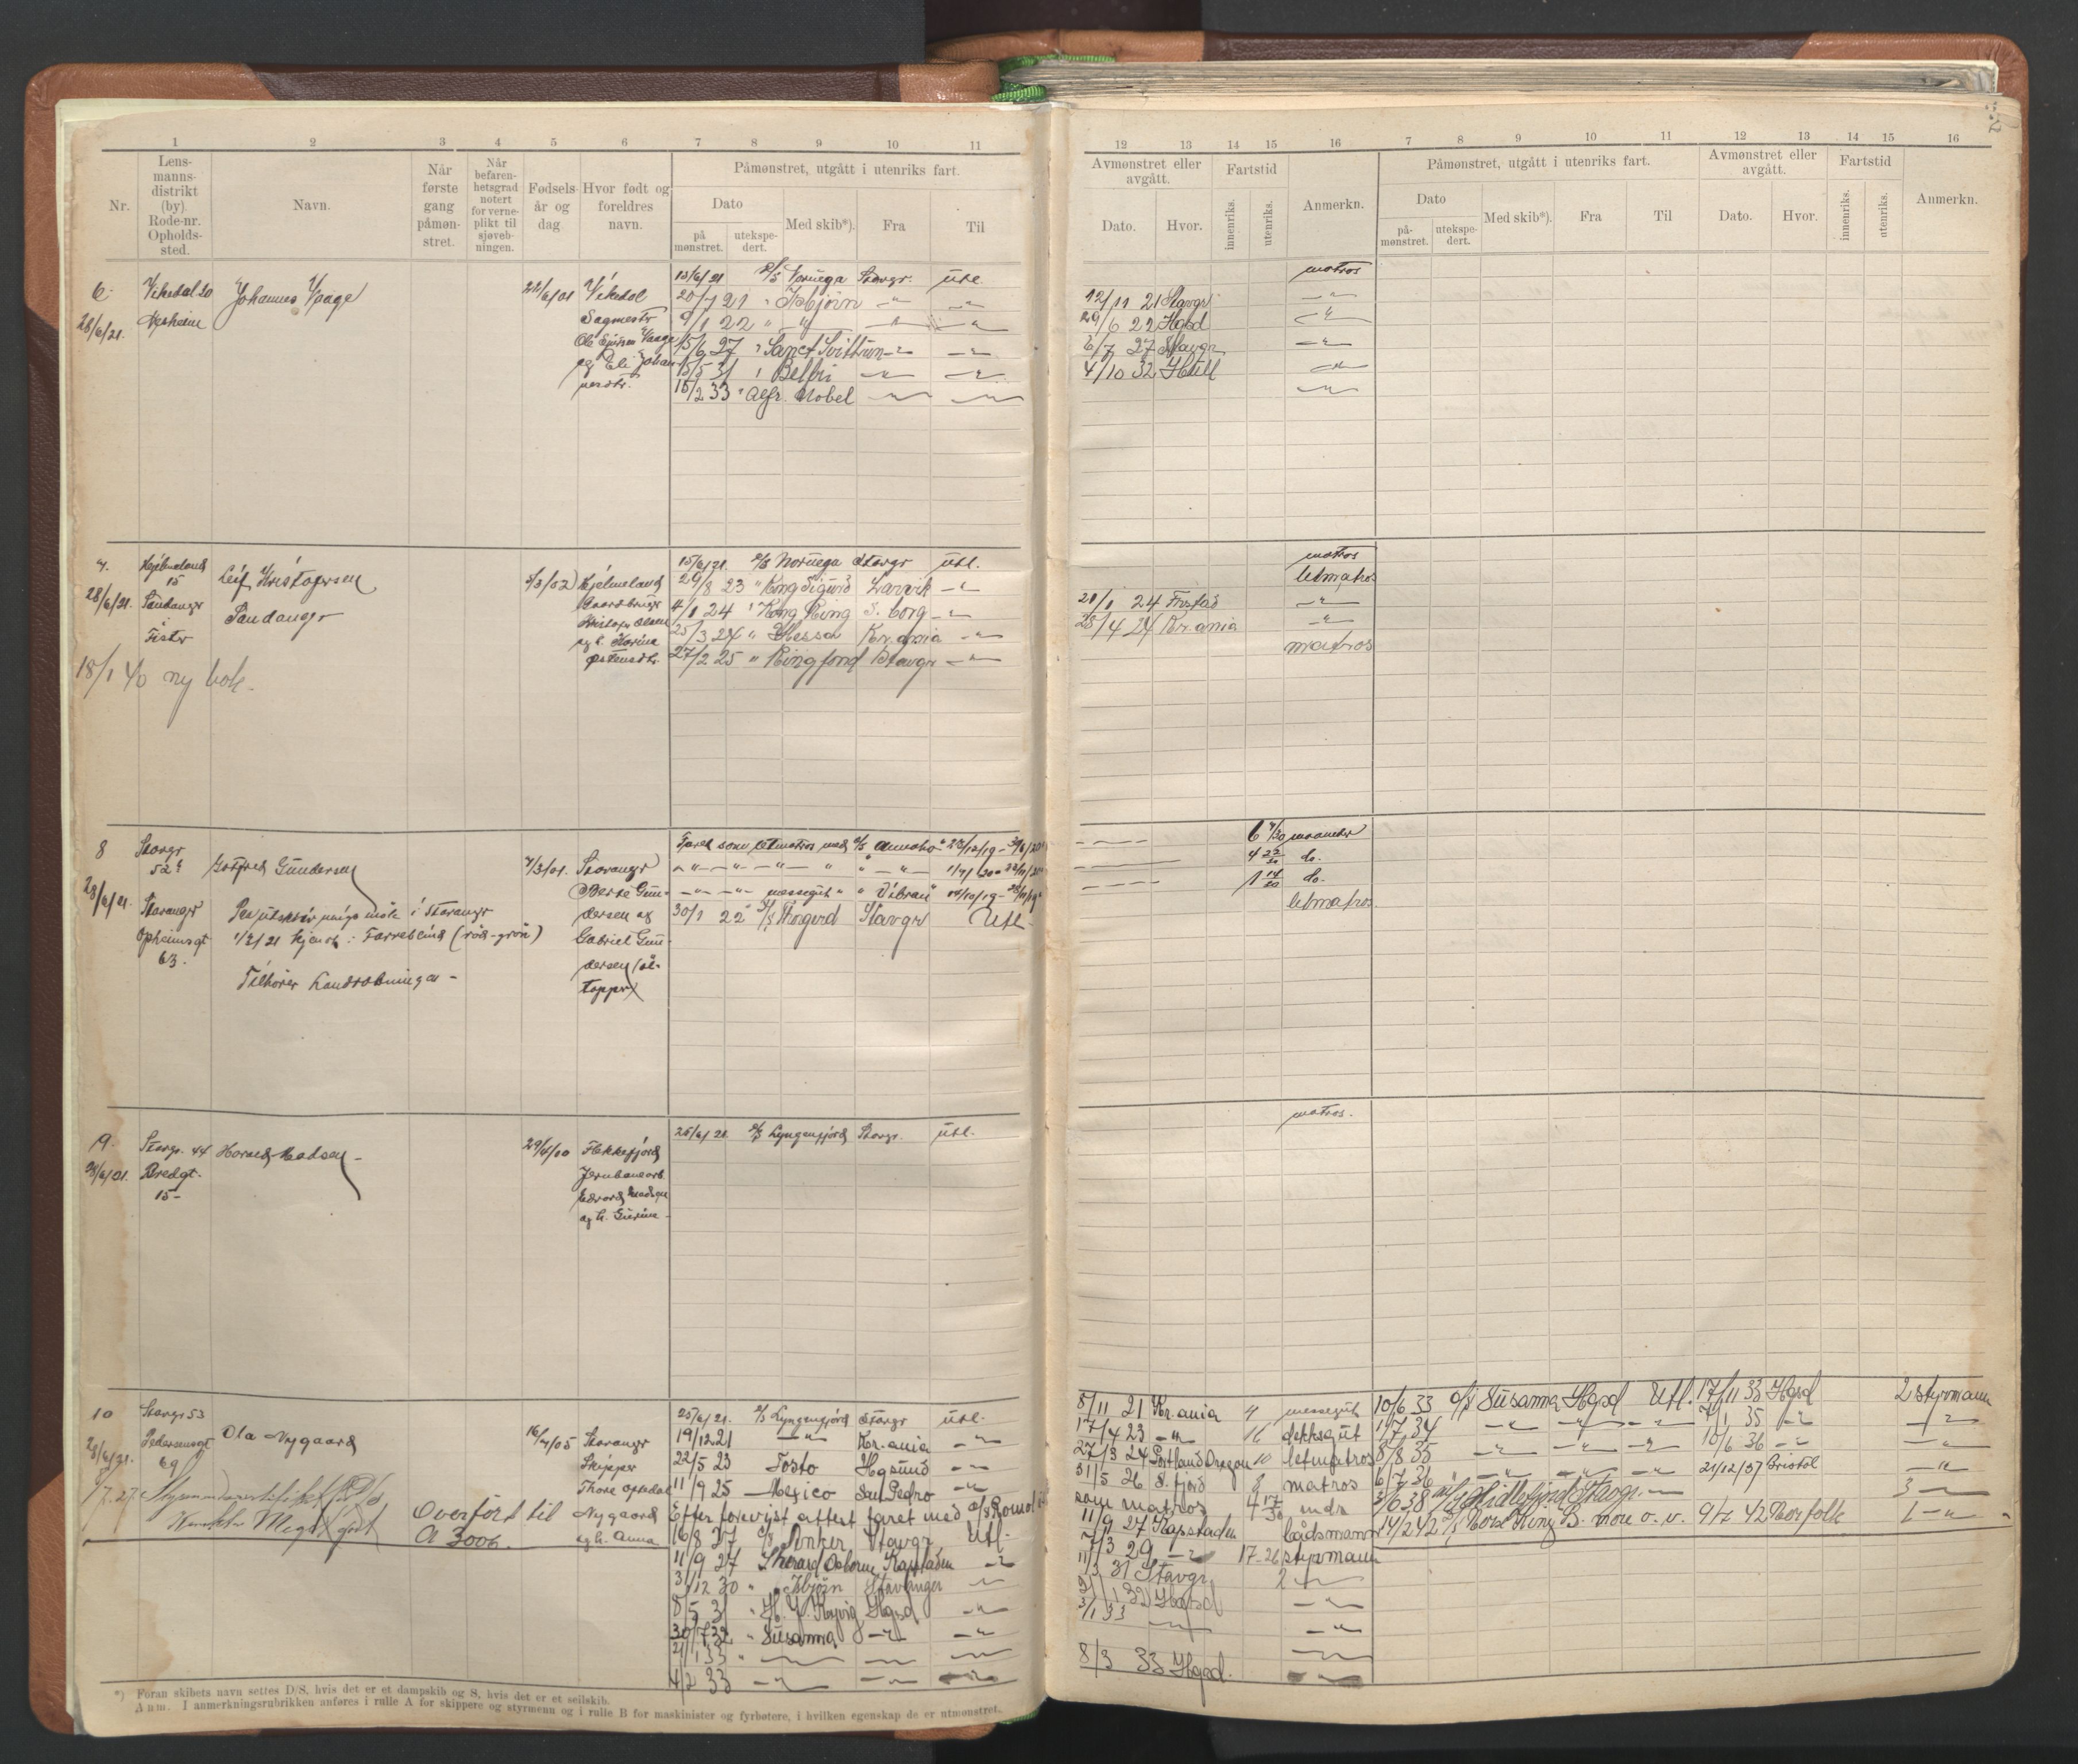 32
1 2 3 4 5 6 7 8 9 10 11
12 13 14 15 16 7 8 9 10 11 12 13 14 15 16
Nr.
Lens-
manns-
distrikt
(by).
Rode-nr.
Opholds-
sted.
Navn.
Når
første
gang
påmøn-
stret.
Når
befaren-
hetsgrad
notert
for verne-
plikt til
sjøveb-
ningen.
Fødsels-
år og
dag
Hvor født og
foreldres
navn.
Påmønstret, utgått i utenriks fart.
Dato
på
mønstret.
utekspe-
dert.
Med skib*).
Fra
Til
Avmønstret eller
avgått.
Dato.
Hvor.
Fartstid
innenriks.
utenriks.
Anmerkn.
Påmønstret, utgått i utenriks fart.
Dato
på-
mønstret.
utekspe-
dert.
Med skib*).
Fra
Til
Avmønstret eller
avgått.
Dato.
Hvor.
Fartstid
innenriks.
utenriks.
Anmerkn.
6
28/6/21.
Vikedal 20
Johannes Vaage
22/6/01
Vikedal
og Eli Johan
13/6/21 Noruega Stavgr. utl. matros
20/7 21 " Isbjörn -"- -"- 12/11 21 Stavgr -"-
9/1 22 " " -"- -"- 29/6 22 Hgsd -"-
15/6 27 " Sanct Svithun -"- -"- 6/7 27 Stavgr -"-
15/5 31 " Belfri -"- -"- 4/10 32 Hull -"-
15/2 33 " Alfr. Nobel -"- -"- -"-
7.
28/6/21.
Hjelmeland
15
Sandangr
Fister
Leif Kristofersen
Sandanger
5/3/02
Hjelmeland
Gaardbruger
Kristofer Olsen
og h. Karina
Østensdtr.
15/6/21. Noruega Stavgr utl. matros
29/8 23 " Kong Sigurd Larvik -"- letmatros
4/1 24 " Kong Ring S. borg -"- 21/1 24 Frstad -"-
25/3 24 " Hessa Kr.ania -"- 28/4 24 Kr.ania -"-
27/2 25 " Ringfond Stavgr -"- matros
18/1 40 ny bok.
8
28/6/21.
Stavgr
52
Stavanger
Opheimsgt
63.
Gotfred Gundersen
i Stavanger
1/2/21 kjendt: Farveblind (röd-grön)
Tilhører Landrobningen -
7/3/01.
Stavanger
Berte Gun-
dersen og
Gabriel Gun-
dersen
Faret som letmatros med 6 7/30 maaneder
-"- -"- -"- -"- 4 22/30 do.
-"- -"- messegut " " 1 14/30 do.
30/1 22 D/S Thorgerd Stavgr Utl. letmatros
9.
Stavgr. 44
Bredgt.
15-
Harald Madsen
29/4/00
Flekkefjord
Jernbanearb.
Edvard Madsen
og h. Gurine
25/6/21. Lyngenfjord Stavgr. utl. matros.
10
28/6/21.
Stavgr 53
Pedersensgt
69
Ola Nygaard
16/4/05
Stavanger
Skipper
Thore
Nygaard
og h. Anna
Overført til
A 3006.
25/6/21. Lyngenfjord Stavgr utl. 8/11 21 Kr.ania 4 messegut
19/12 21 -"- Kr.ania -"- 17/4 23 -"- 16 dekksgut
22/5 23 Tosto Hgsund -"- 27/3 24 Portland Oregon 10 letmatros
11/9 25 Mexico San Pedro -"- 31/5 26 S. fjord 8 matros
Efter forevist attest faret med D/S Romol som matros 4 17/30 mdr
16/8 27 D/S Anker Stavgr Utl. 11/9 27 Kapstaden båtsmann
11/9 27 Sherard Osborne Kapstaden -"- 7/3 29 -"- 17-26 styrmann
3/12 30 " Isbjörn Stavanger -"- 11/3 31 Stavgr 2 -"-
8/5 31 Hgsd -"- -"-
30/7 32 " Susanna -"- -"- 3/1 33 -"-
21/1 33 " -"- -"- -"-
4/2 33 -"- -"- -"- 8/3 33 Hgsd. -"-
10/6 33 D/S Susanna Hgsd Utl. 17/11 33 Hgsd 2 styrmann
1/7 34 -"- -"- -"- 7/1 35 -"- -"-
8/8 35 -"- -"- -"- 10/6 36 -"- -"-
6/7 36 -"- -"- -"- 21/12/37 Bristol -"-
3/6 38 Stavgr. -"- 3 -"-
14/2 42 Norse King B. more o. v. 9/7 42 Norfolk 1 -"-
*) Foran skibets navn settes D/S, hvis det er et dampskib og S, hvis det er et seilskib.
Anm. I anmerkningsrubrikken anføres i rulle A for skippere og styrmenn og i rulle B for maskinister og fyrbøtere, i hvilken egenskap de er utmønstret.